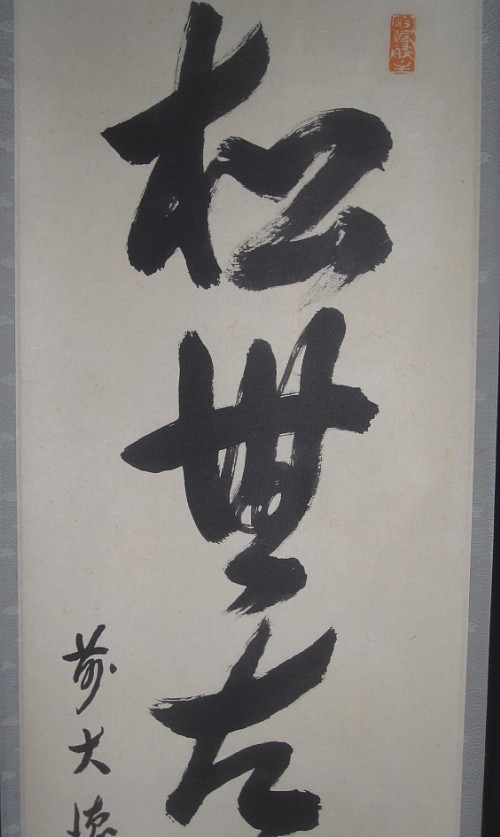 松無古
前大徳